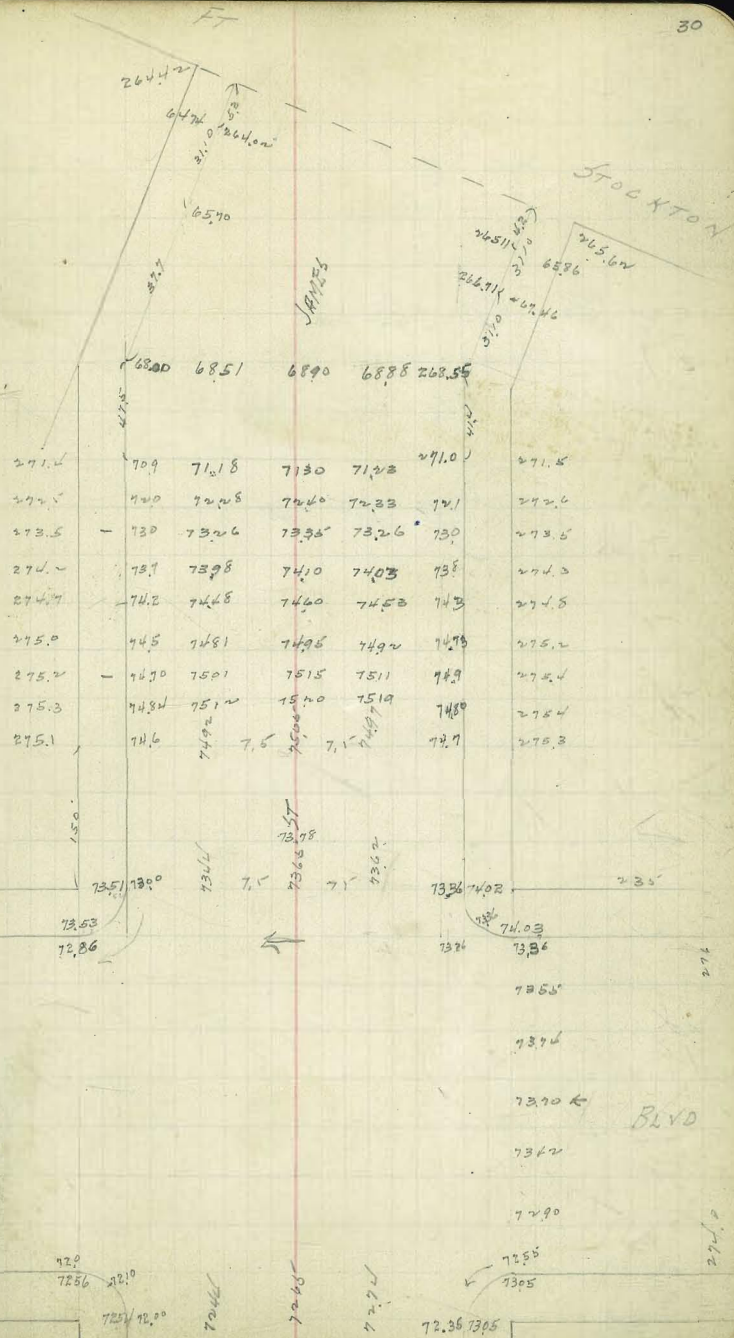 30
FT
264.42
64.74
264.02
31.10
65.70
37.7
STOCKTON
265.11
4.2
31.10
65.86
265.62
266.71
267.46
31.10
JAMES
68.00 68.51 68.90 68.88 268.55
47.5
70.9 71.18 71.30 71.23 271.0 271.5
272.5 72.0 72.28 72.40 72.33 72.1 272.6
273.5 - 73.0 73.26 73.35 73.26 73.0 273.5
274.2 73.7 73.98 74.10 74.03 73.8 274.3
274.7 - 74.2 74.48 74.60 74.53 74.3 274.8
275.0 74.5 74.81 74.96 74.92 74.73 275.2
275.2 - 74.70 75.01 75.15 75.11 74.9 275.4
275.3 74.84 75.12 75.20 75.19 74.80 275.4
275.1 74.6 74.92 7.5 75.06 7.5 74.97 74.7 275.3
150.
ST
73.78
73.51 73.00 7.5 73.65 7.5 73.62 73.36 74.02 235
73.53 73.36 74.03
72.86 73.26 73.36
276
73.55
73.74
73.70
BLVD
73.42
72.90
72.0 72.55
72.56 72.10 73.05
72.54 72.00 72.46 72.65 72.72 72.35 73.05
272.0